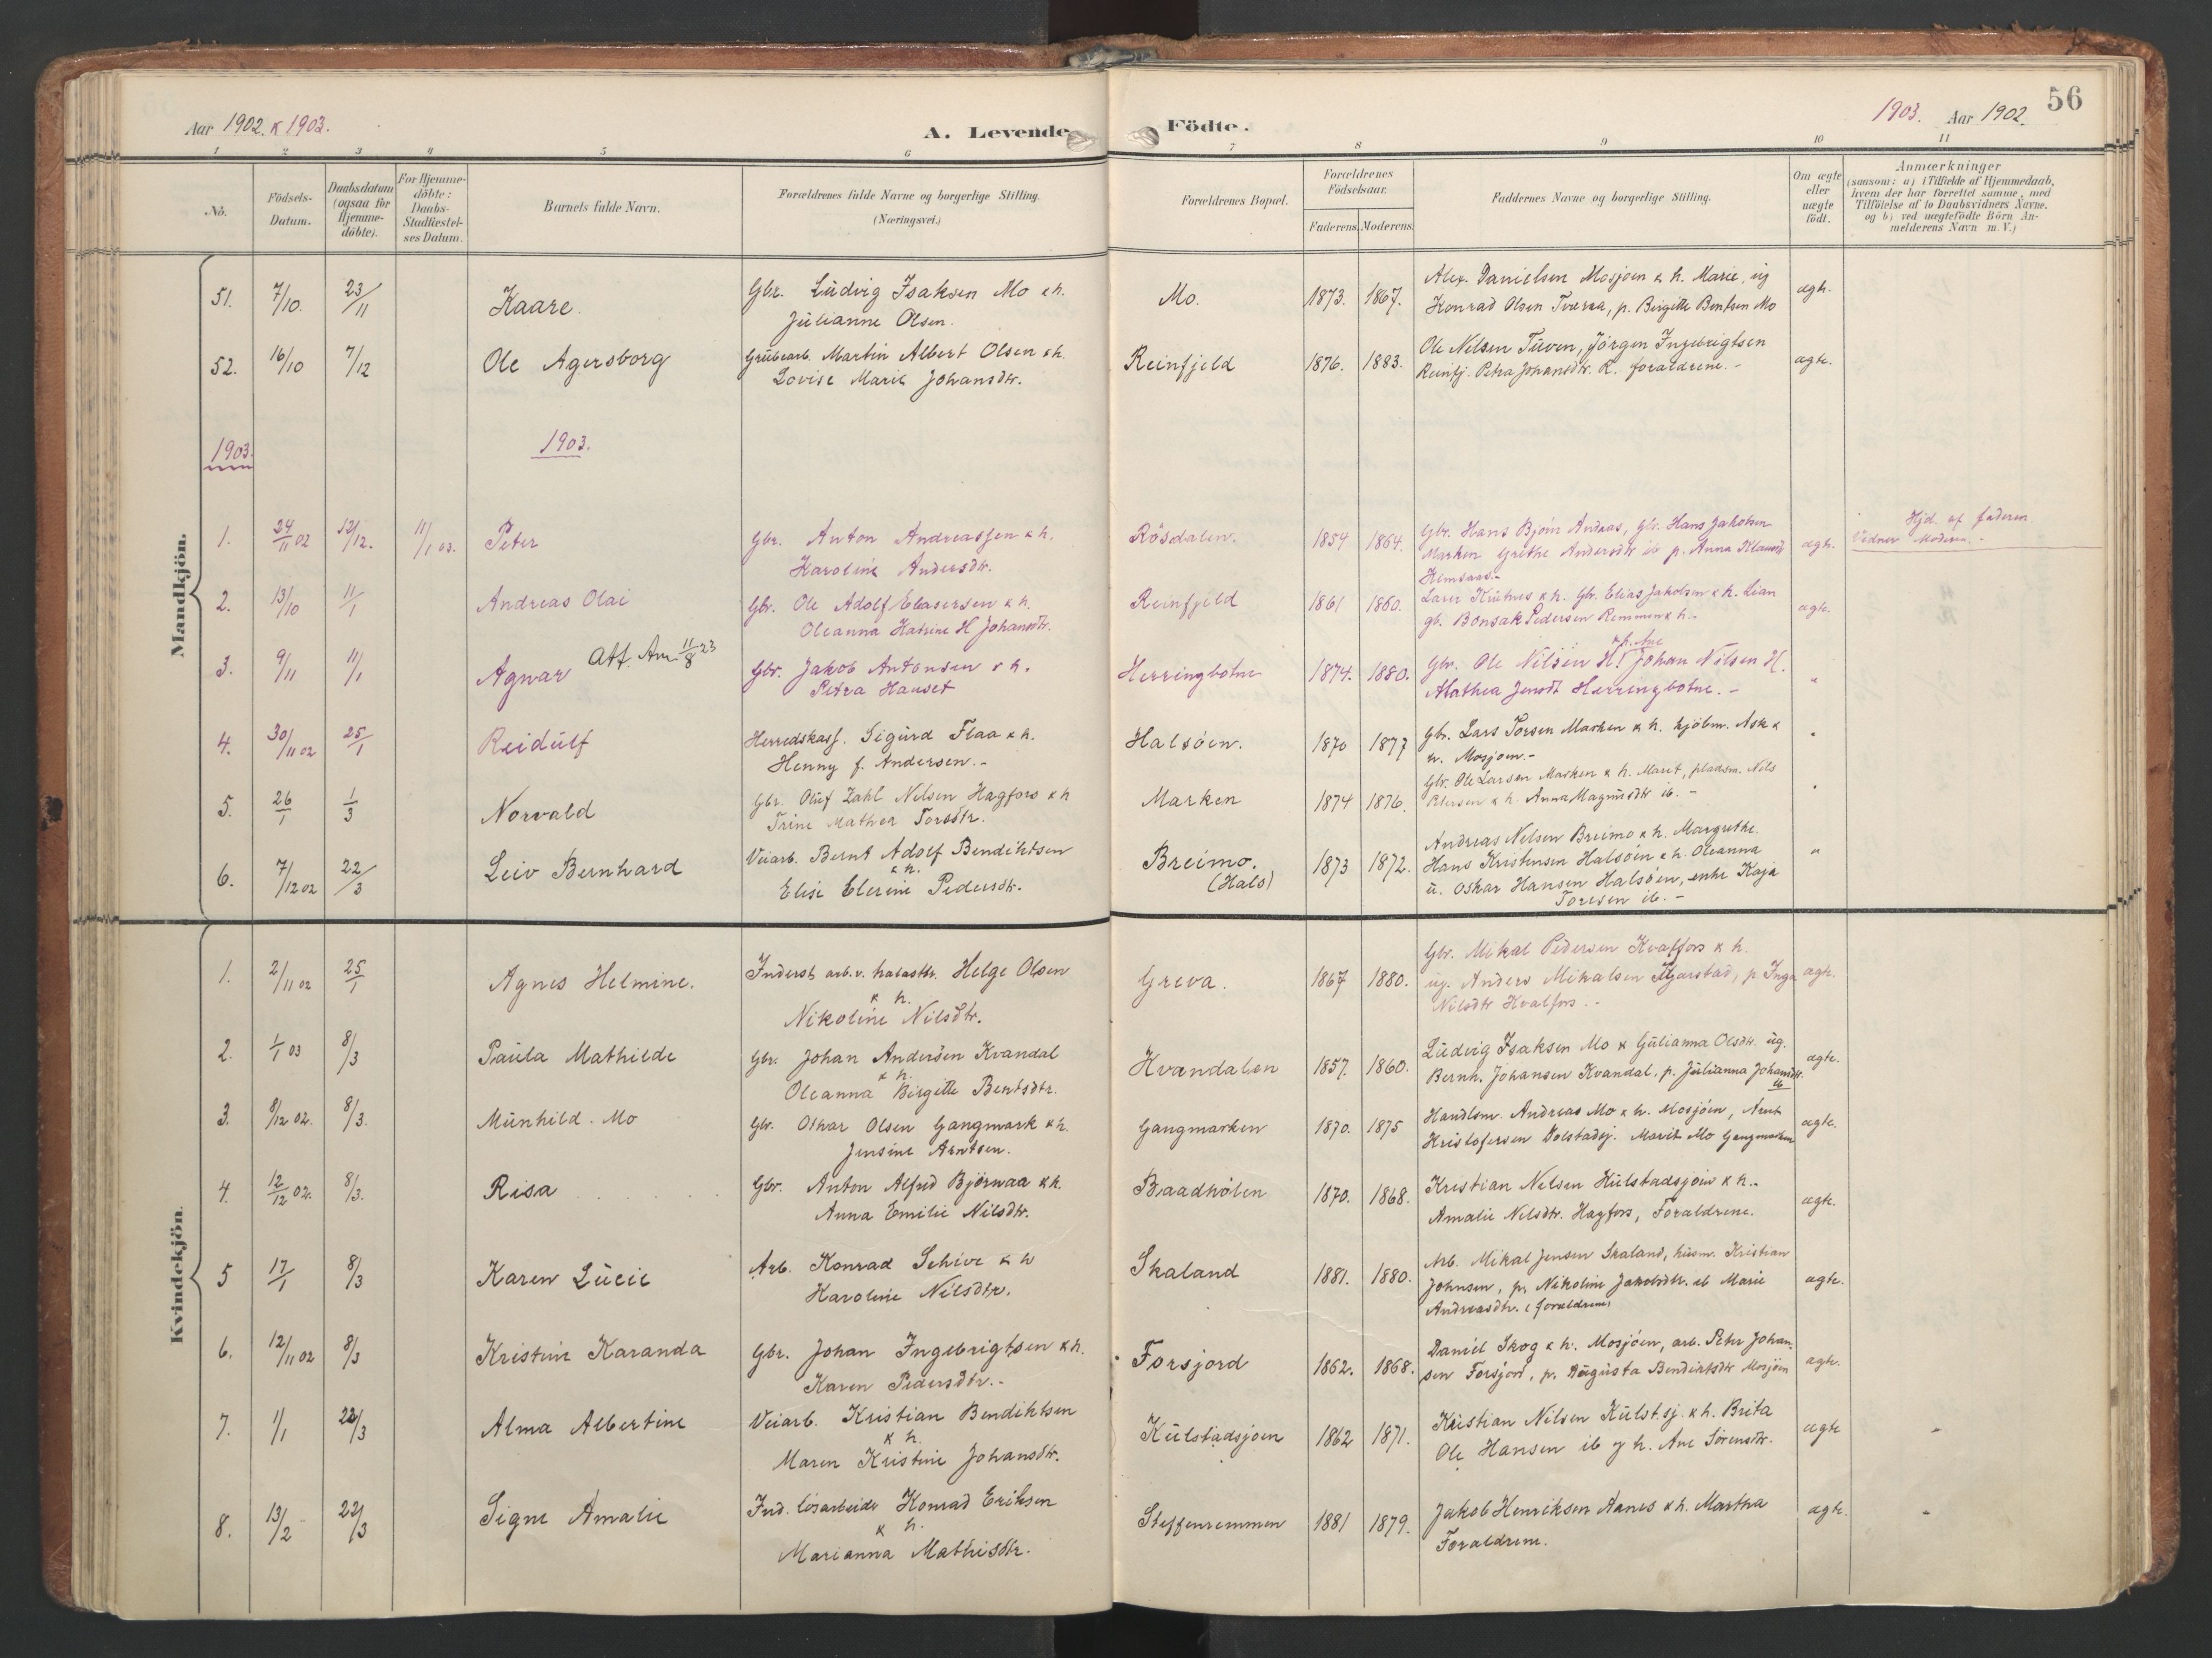 Aar 1902. & 1903.
A. Levende
Födte.
1903. Aar 1902.
56
1 2 3 4 5 6 7 8 9 10 11
No.
Födsels-
Datum.
Daabsdatum
(ogsaa for
Hjemme-
döbte).
For Hjemme-
döbte:
Daabs-
Stadfæstel-
ses Datum.
Barnets fulde Navn.
Forældrenes fulde Navne og borgerlige Stilling.
(Næringsvei.)
Forældrenes Bopæl.
Forældrenes
Födselsaar.
Faderens. Moderens.
Faddernes Navne og borgerlige Stilling.
Om ægte
eller
uægte
födt.
Anmærkninger
(saasom: a) i Tilfælde af Hjemmedaab,
hvem der har forrettet samme, med
Tilföielse af to Daabsvidners Navne,
og b) ved uægtefödte Börn An-
melderens Navn m. V.)
Mandkjön.
51. 7/10. 23/11 Kaare. Gbr. Ludvig Isaksen Mo & h.
Julianne Olsen.
Mo. 1873. 1867. Alex. Danielsen Mosjøen & h. Marie, ug
Konrad Olsen Tverra, p. Birgitte Bentsen Mo
ægte.
52. 16/10 7/12 Ole Agersborg Grubearb. Martin Albert Olsen & h.
Lovise Marie Johansdtr.
Reinfjeld 1876. 1883. Ole Nilsen Tuven, Jörgen Ingebrigtsen
Reinfj. Petra Johansdtr. R. forældrene. -
ægte.
1903. 1903.
1. 24/11 02 12/12. 11/1 03. Peter Gbr. Anton Andreassen & h.
Karoline Andersdtr.
Rösdalen. 1854 1864. Gbr. Hans Bjoin Andeas, Gbr. Hans Jakobsen
Marken Grethe Andersdtr ib p. Anna Klausd
Kemsaas.-
ægte.
Hjd. af faderen
Vidner Moderen. -
2. 13/10 11/1 Andreas Olai Gbr. Ole Adolf Eliasersen & h.
Oleanna Katrine H Johansdtr.
Reinfjeld 1861 1860. Lars Krutnes & h. Gbr. Elias Jakobsen & h. Lian
gb. Bonsak Pedersen Remmen & h. -
ægte.
3. 9/11 11/1 Agnar Att. Am. 11/8 23 Gbr. Jakob Antonsen & h.
Petra Hanset
Herringbotne 1874. 1880. Gbr. Ole Nilsen H! & h. Ane Johan Nilsen H.
Alathea Jensdt Herringbotne. -
"
4. 30/11 02 25/1 Reidulf Herredskass. Sigurd Flaa & h.
Henny f. Andersen. -
Halsöen. 1870 1877 Gbr. Lars Torsen Marken & h. kjöbm. Ask &
h. Mosjoen. -
"
5. 26/1 1/3 Norvald Gbr. Oluf Zahl Nilsen Hagfors & h
Trine Mathea Torsdtr.
Marken 1874 1876. Gbr. Ole Larsen Marken & h. Marit, pladsm. Nils
Petersen & h. Anna Magnusdtr ib. -
"
6. 7/12 02 22/3 Leiv Bernhard Veiarb. Bernt Adolf Bendiktsen
& h.
Elise Elerine Pedersdtr.
Breimo.
(Hals)
1873 1872. Andreas Nilsen Breimo & h. Margrethe
Hans Kristensen Halsöen & h. Oleanna
u. Oskar Hansen Halsöen, enke Kaja
Toresen ib. -
"
Kvindekjön.
1. 2/11 02 25/1 Agnes Helmine. Inderst arb. v. Helge Olsen
& h.
Nikoline Nilsdtr.
Greva. 1867 1880. Gbr. Mikal Pedersen Kvalfors & h.
ug. Anders Mikalsen Fjarstad, p. Inga
Nilsdtr Kvalfors. -
ægte.
2. 1/1 03 8/3 Paula Mathilde Gbr. Johan Andersen Kvandal
& h.
Oleanna Birgitte Bentsdtr.
Kvandalen 1857. 1860. Ludvig Isaksen Mo & Gulianna Olsdtr. ug.
Bernh. Johansen Kvandal, p. Julianna Johansdtr.
ib
ægte.
3. 8/12 02. 8/3. Munhild. Mo Gbr. Oskar Olsen Gangmark & h.
Jensine Arntsen.
Gangmarken 1870. 1875 Handlsm. Andreas Mo & h. Mosjöen, Arnt
Kristofersen Dolstadsj. Marit Mo Gangmarken
ægte.
4. 12/12 02. 8/3. Risa Gbr. Anton Alfred Björnaa & h.
Anna Emilie Nilsdtr.
Baadhölen 1870. 1868. Kristian Nilsen Kulstadsjoen & h. -
Amalie Nilsdtr. Hagfors, Forældrene.
ægte.
5 17/1 8/3 Karen Lucie Arb. Konrad Schive & h
Karoline Nilsdtr.
Skaland 1881. 1880. Arb. Mikal Jensen Skaland, husm. Kristian
Johnsen, p. Nikoline Jakobsdtr. ib Marie
Andreasdtr. (forældrene)
ægte.
6. 12/11 02 8/3 Kristine Karanda Gbr. Johan Ingebrigtsen & h.
Karen Pedersdtr. -
Forsjord 1862. 1868. Daniel Skog & h. Mosjöen, arb. Peter Johan-
sen Forsjord, p. Augusta Bendiktsdtr Mosjöen
ægte.
7. 1/1 22/3 Alma Albertine Veiarb. Kristian Bendiktsen
& h.
Maren Kristine Johansdtr.
Kulstadsjoen 1862 1871. Kristian Nilsen Kulst.sj. & h. Brita
Ole Hansen ib & h. Ane Sörensdtr.
ægte -
8. 13/2 22/3 Signe Amalie Ind. lösarbeide Konrad Eriksen
& h.
Marianna Mathisdtr.
Steffenremmen 1881 1879. Jakob Henriksen Aanes & h. Martha
Forældrene.
ægte. -